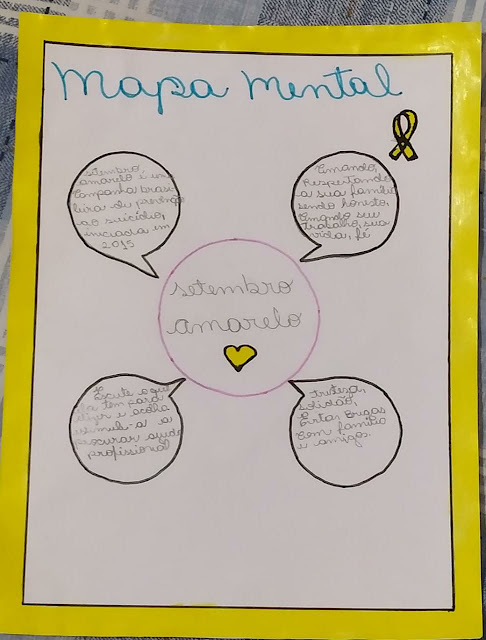 Mapa Mental
setembro
amarelo é uma
campanha brasi-
leira de prevenção
ao suicídio,
iniciada em
2015
Amando,
Respeitando
a sua família
sendo honesto,
Amando seu
trabalho, sua
vida, fé
setembro
amarelo
Escute o que
ela tem para
dizer e acolha
procurar ajuda
profissional
tristeza,
solidão,
com família
e amigos.